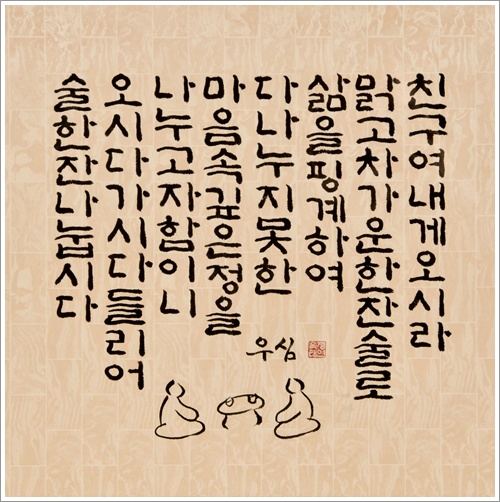 친구여내게오시라
맑고차가운한잔술로
삶을핑계하여
다나누지못한
마음속깊은정을
나누고자함이니
오시다가시다들리어
술한잔나눕시다
우심